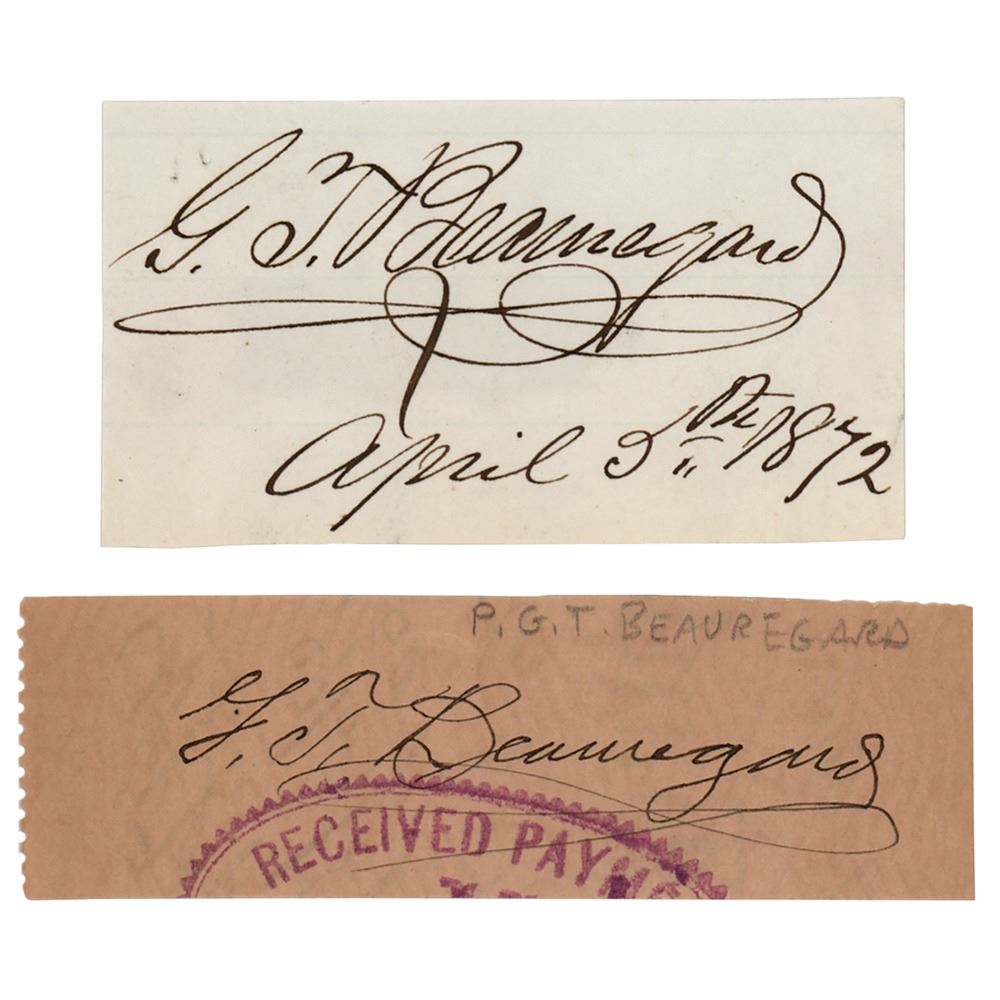 G. T. Beauregard
April 5th 1872
P. G. T. BEAUREGARD
G. T. Beauregard
RECEIVED PAYME